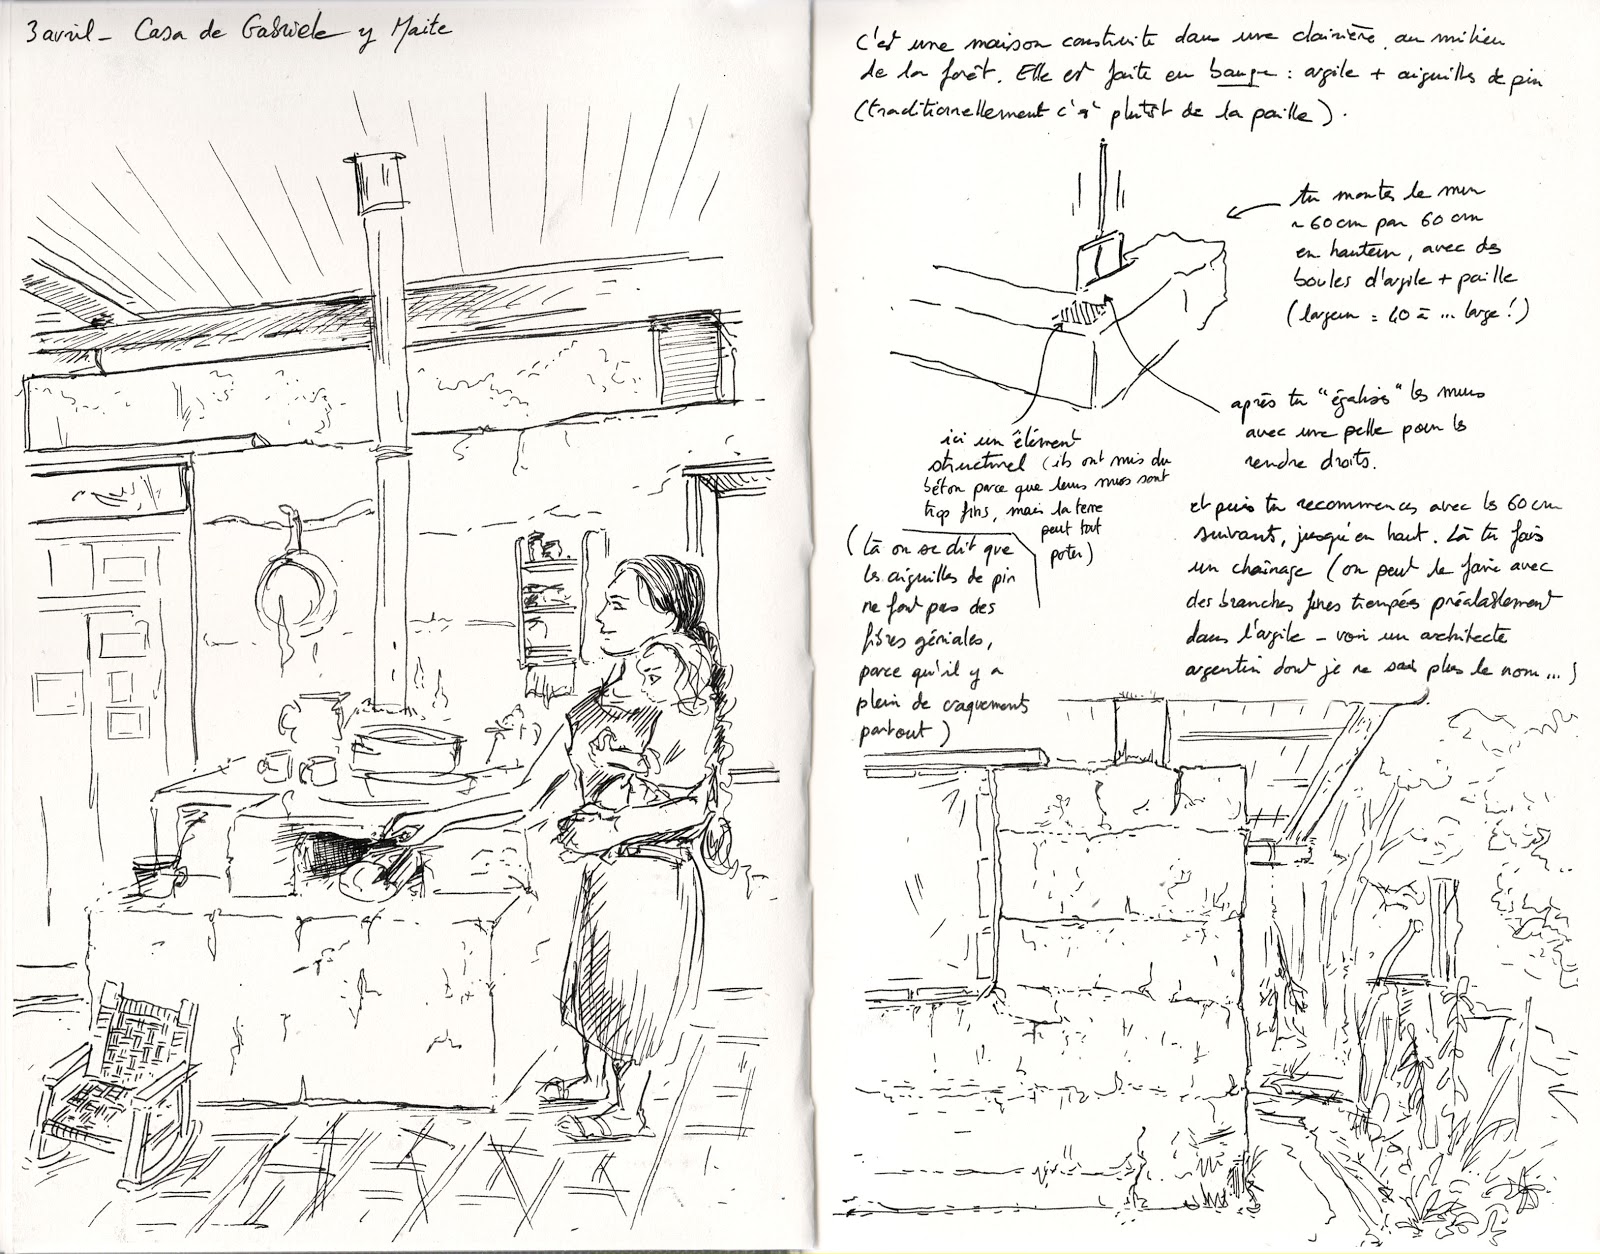 3 avril - Casa de Gabriele y Maite
C'est une maison construite dans une clairière, au milieu
de la forêt. Elle est faite en bauge : argile + aiguilles de pin
(traditionellement c'est plutôt de la paille).
tu montes le mur
~ 60 cm par 60 cm
en hauteur, avec des
boules d'argile + paille
(largeur = 40 à ... large !)
après tu "égalises" les murs
avec une pelle pour les
rendre droits.
ici un élément
structurel (ils ont mis du
béton parce que leurs murs sont
trop fins, mais la terre
peut tout
porter)
(là on se dit que
les aiguilles de pin
ne font pas des
fibres géniales,
parce qu'il y a
plein de craquements
partout)
et puis tu recommences avec les 60 cm
suivants, jusqu'en haut. Là tu fais
un chaînage (on peut le faire avec
des branches fines trempées préalablement
dans l'argile - voir un architecte
argentin dont je ne sais plus le nom...)